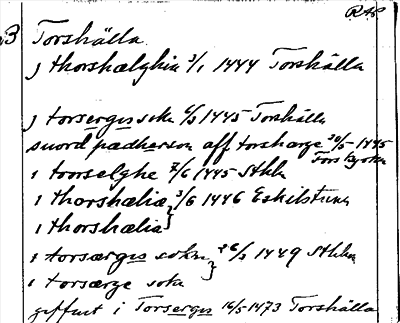 RAp
3 Torshälla
j thorshælghia 3/1 1444 Torshälla
j torsergis sokn 6/3 1445 Torshälla
suord pædherson aff torsharge 30/5 1445
Torsbysokn
i toorselghe 7/6 1445 Sthlm
i thorshælia } 3/6 1446 Eskilstuna
i thorshælia }
i torsærgis sokn } 26/3 1449 Sthlm
i torsærge sokn }
giffuit i Torsergis 16/5 1473 Torshälla